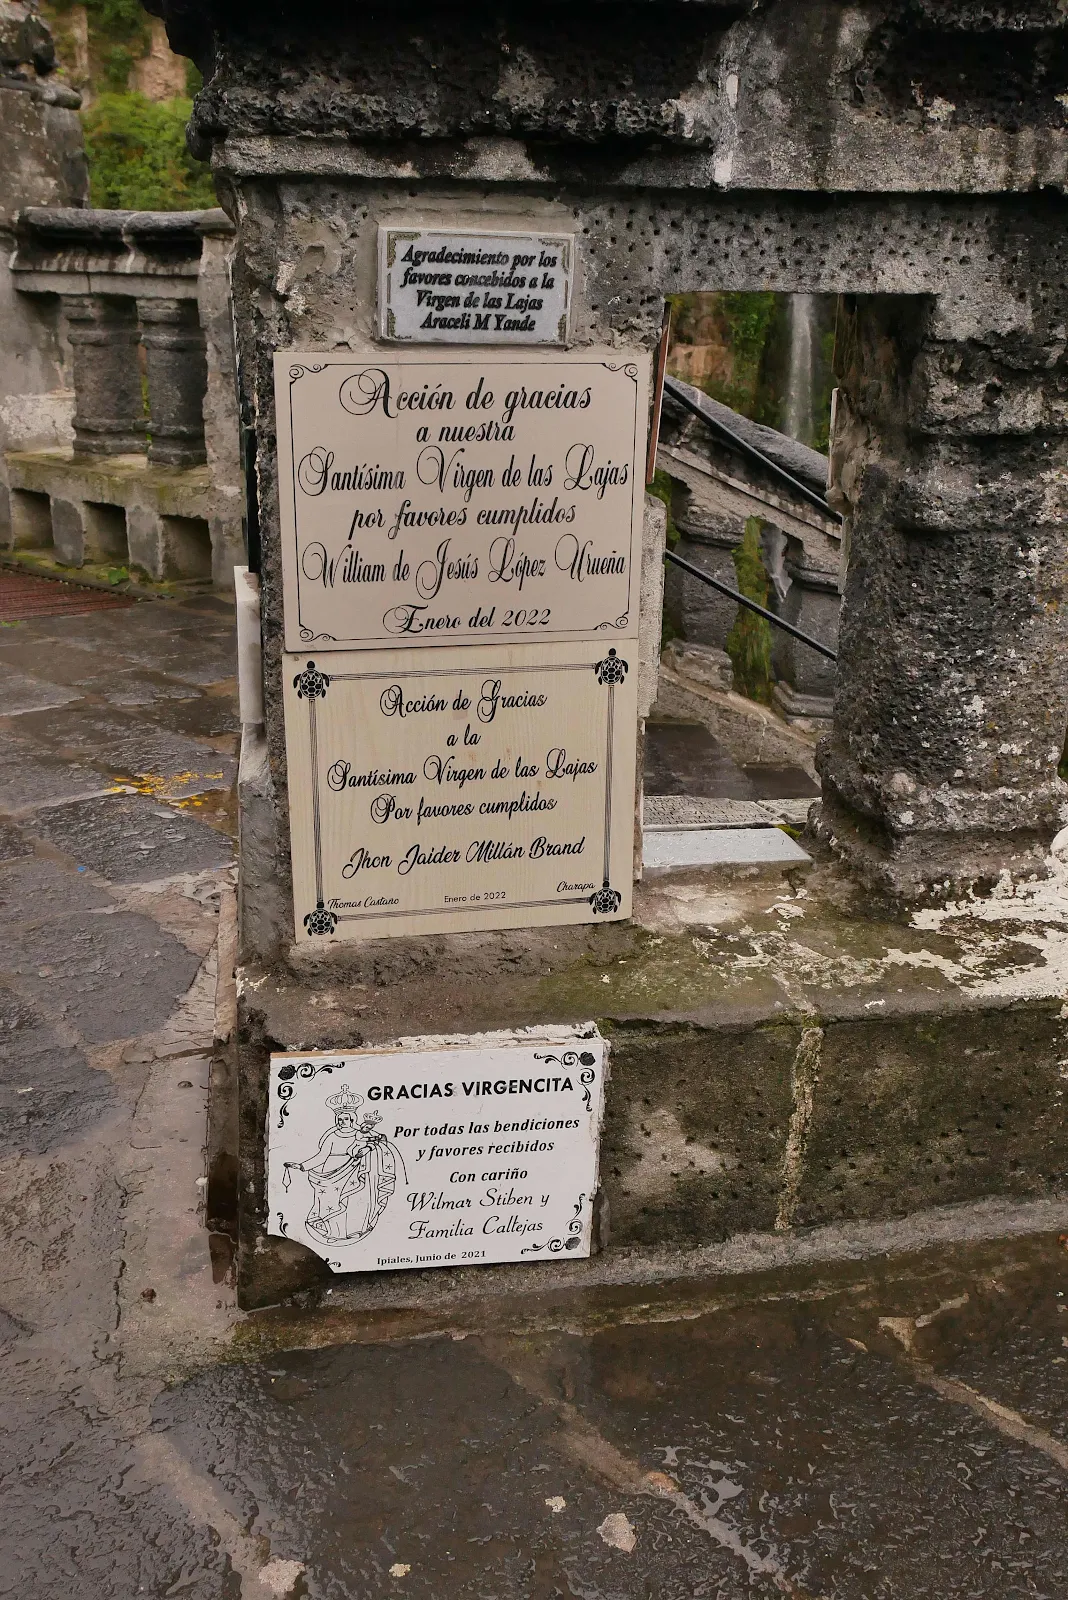 Agradecimiento por los
favores concebidos a la
Virgen de las Lajas
Araceli M Yande
Acción de gracias
a nuestra
Santísima Virgen de las Lajas
por favores cumplidos
William de Jesús López Urueña
Enero del 2022
Acción de Gracias
a la
Santísima Virgen de las Lajas
Por favores cumplidos
Jhon Jaider Millán Brand
Thomas Castaño
Enero de 2022
Charapa
GRACIAS VIRGENCITA
Por todas las bendiciones
y favores recibidos
Con cariño
Wilmar Stiben y
Familia Callejas
Ipiales, Junio de 2021